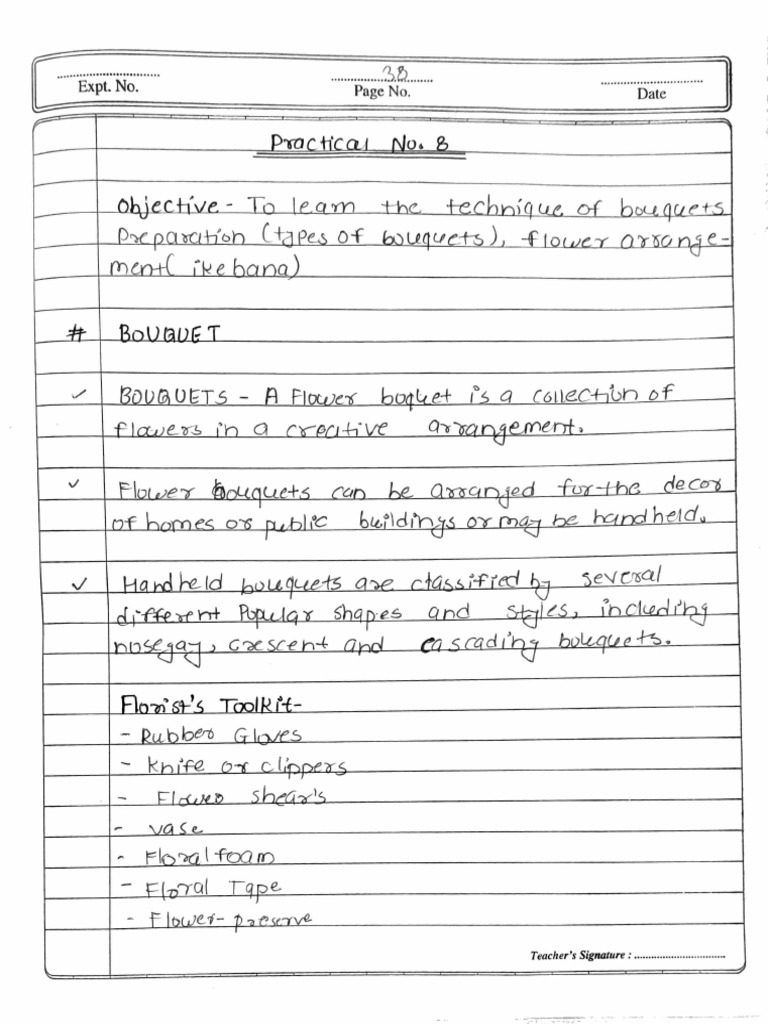 38
Expt. No.
Page No.
Date
Practical No. 8
Objective - To learn the technique of bouquets
Preparation (types of bouquets), flower arrange-
ment( ikebana)
# BOUQUET
✓ BOUQUETS - A Flower boquet is a collection of
flowers in a creative arrangement.
✓ Flower bouquets can be arranged for the decor
of homes or public buildings or may be handheld.
✓ Handheld bouquets are classified by several
different Popular shapes and styles, including
nosegay, crescent and cascading bouquets.
Florist's Toolkit-
- Rubber Gloves
- knife or clippers
- Flower shear's
- vase
- Floral foam
- Floral Tape
- Flower-preserve
Teacher's Signature :